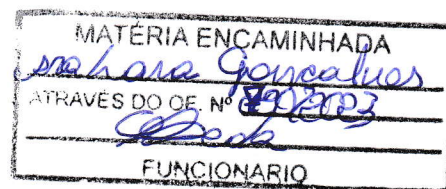 MATÉRIA ENCAMINHADA
Gonçalves
ATRAVÉS DO OF. Nº /2023
FUNCIONARIO